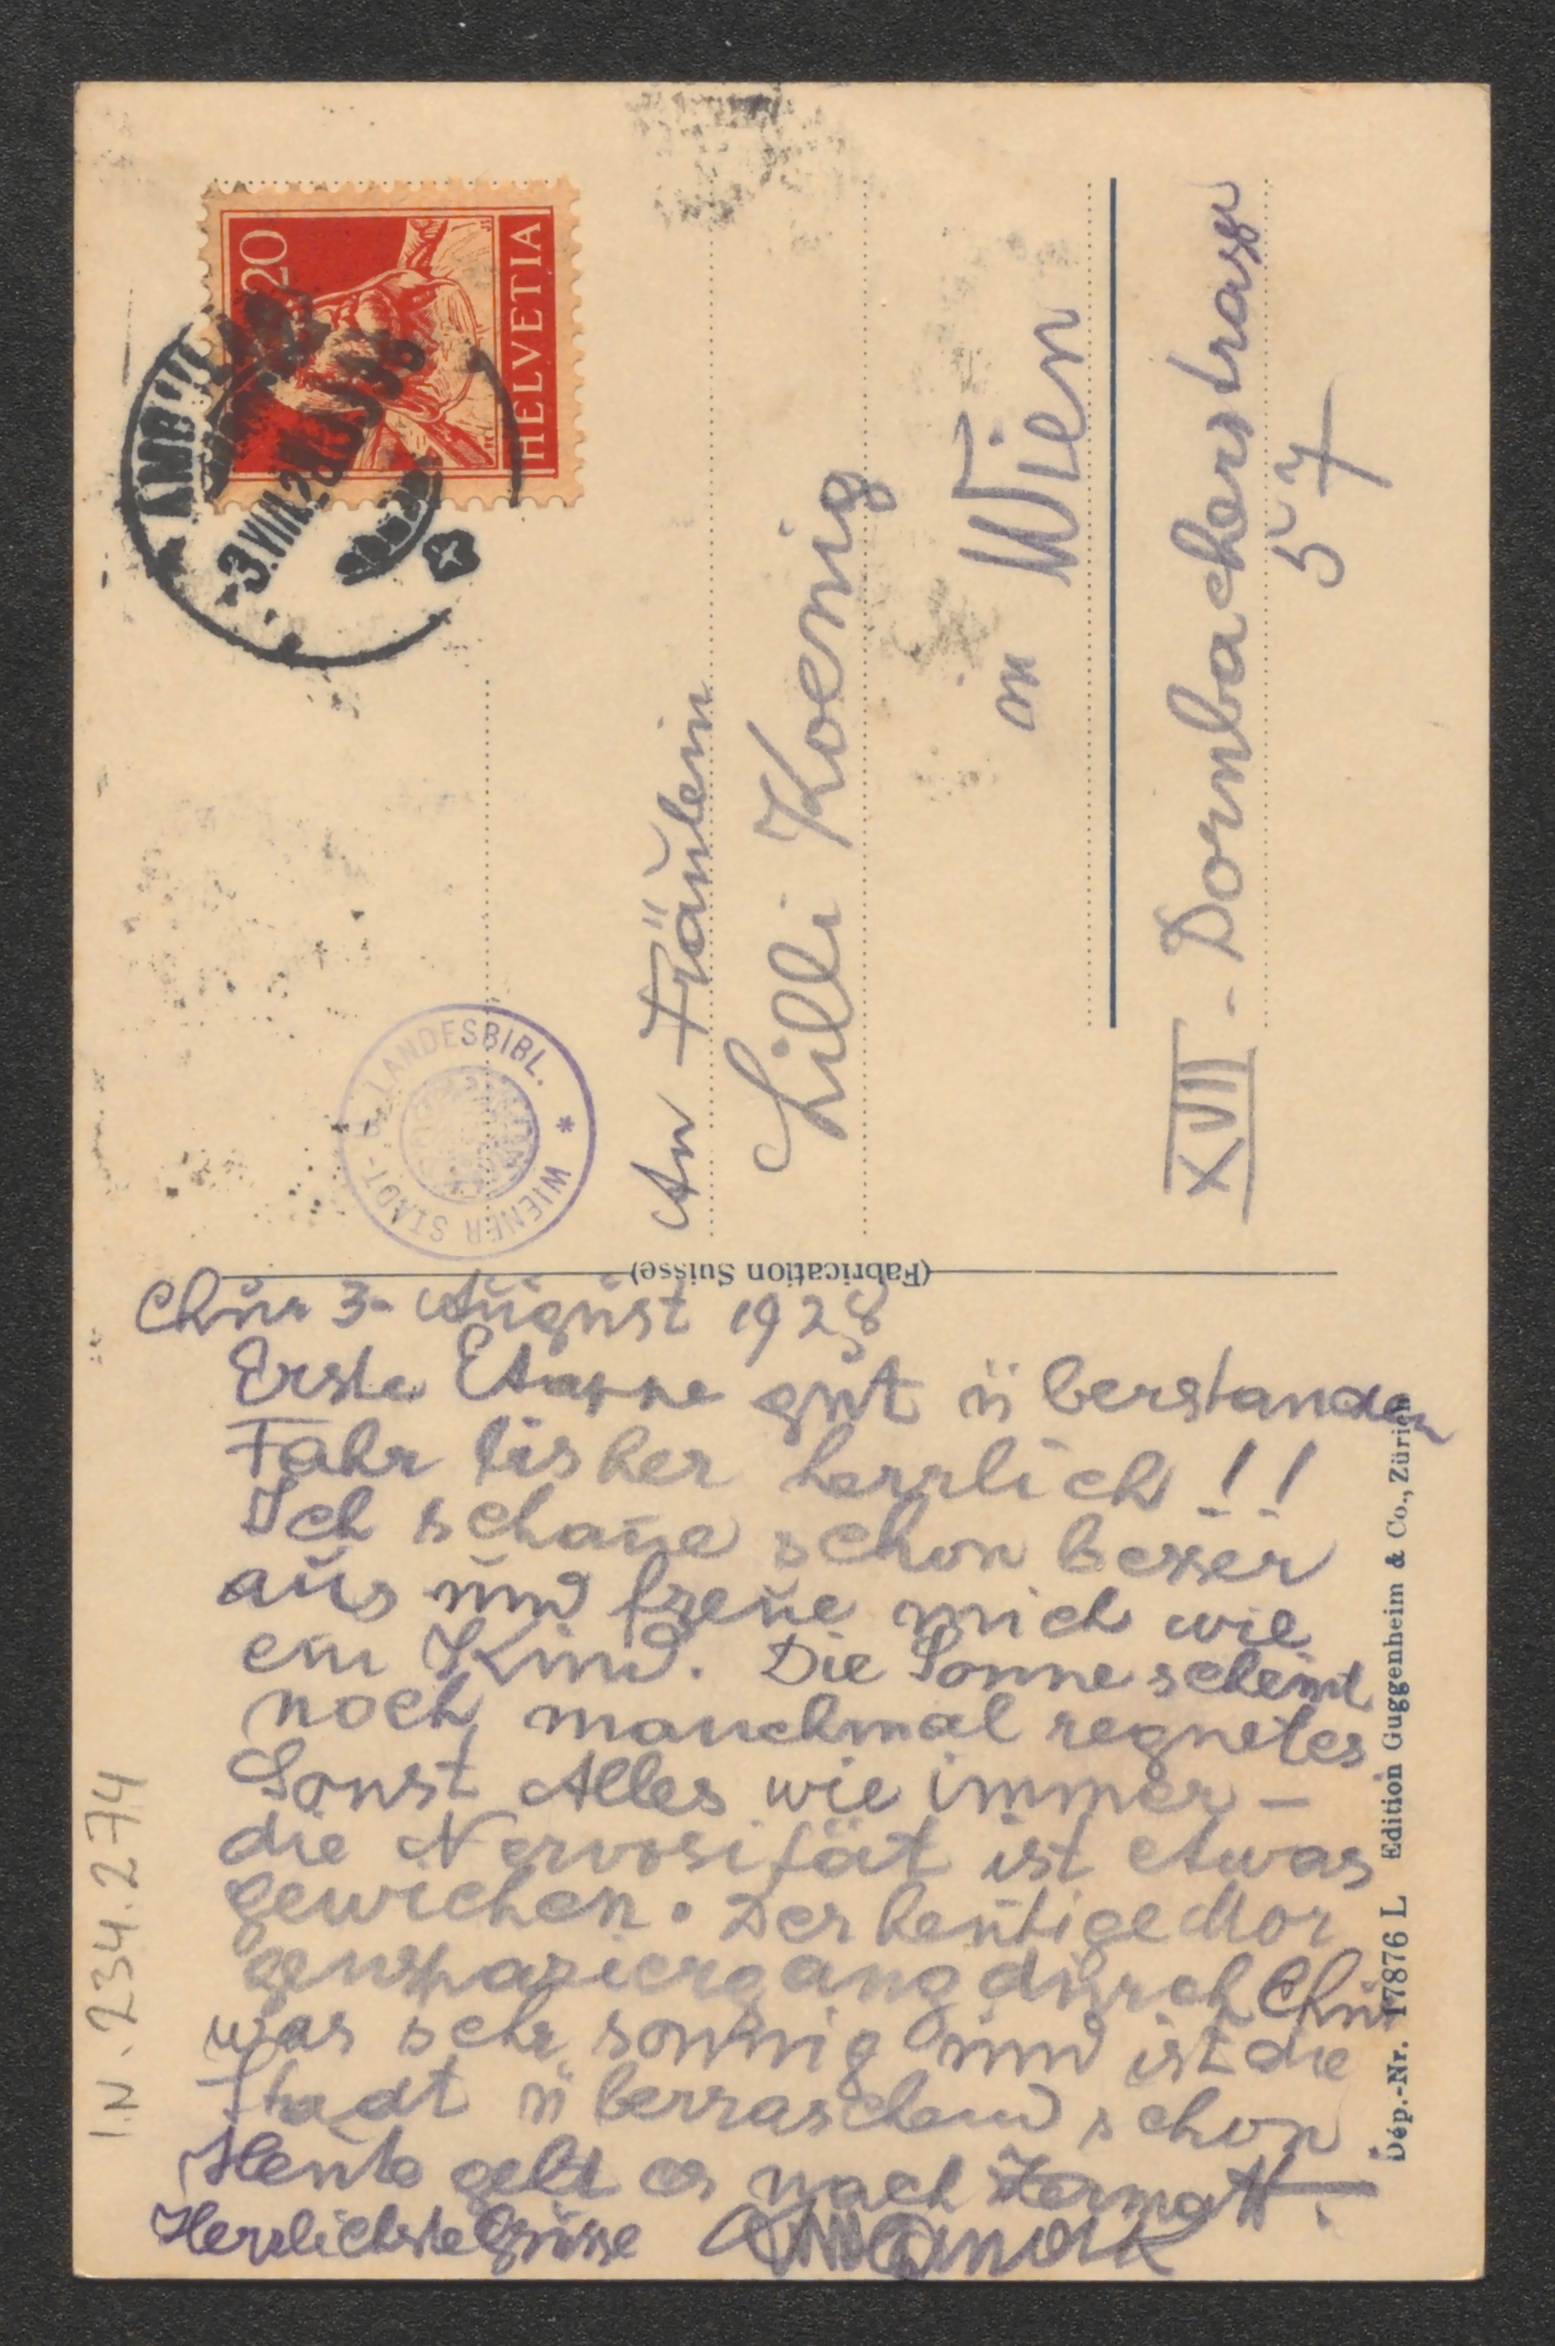 HELVETIA
20
AMBULANT
-3.VIII.28
WIENER STADT- U. LANDESBIBL. *
An Fräulein
Lilli Koenig
in Wien
XVII - Dornbacherstrasse
57
(Fabrication Suisse)
Chur 3. August 1928
Erste Etappe gut überstanden
Fahr bisher herrlich!!
Ich schaue schon besser
aus und freue mich wie
ein Kind. Die Sonne scheint
noch manchmal regnet es
Sonst Alles wie immer –
die Nervosität ist etwas
gewichen. Der heutige Mor
genspaziergang durch Chur
war sehr sonnig und ist die
Stadt überraschend schön
Heute geht es nach Zermatt.
Herzlichste Grüsse
Dép.-Nr. 17876 L Edition Guggenheim & Co., Zürich
I.N. 234.274